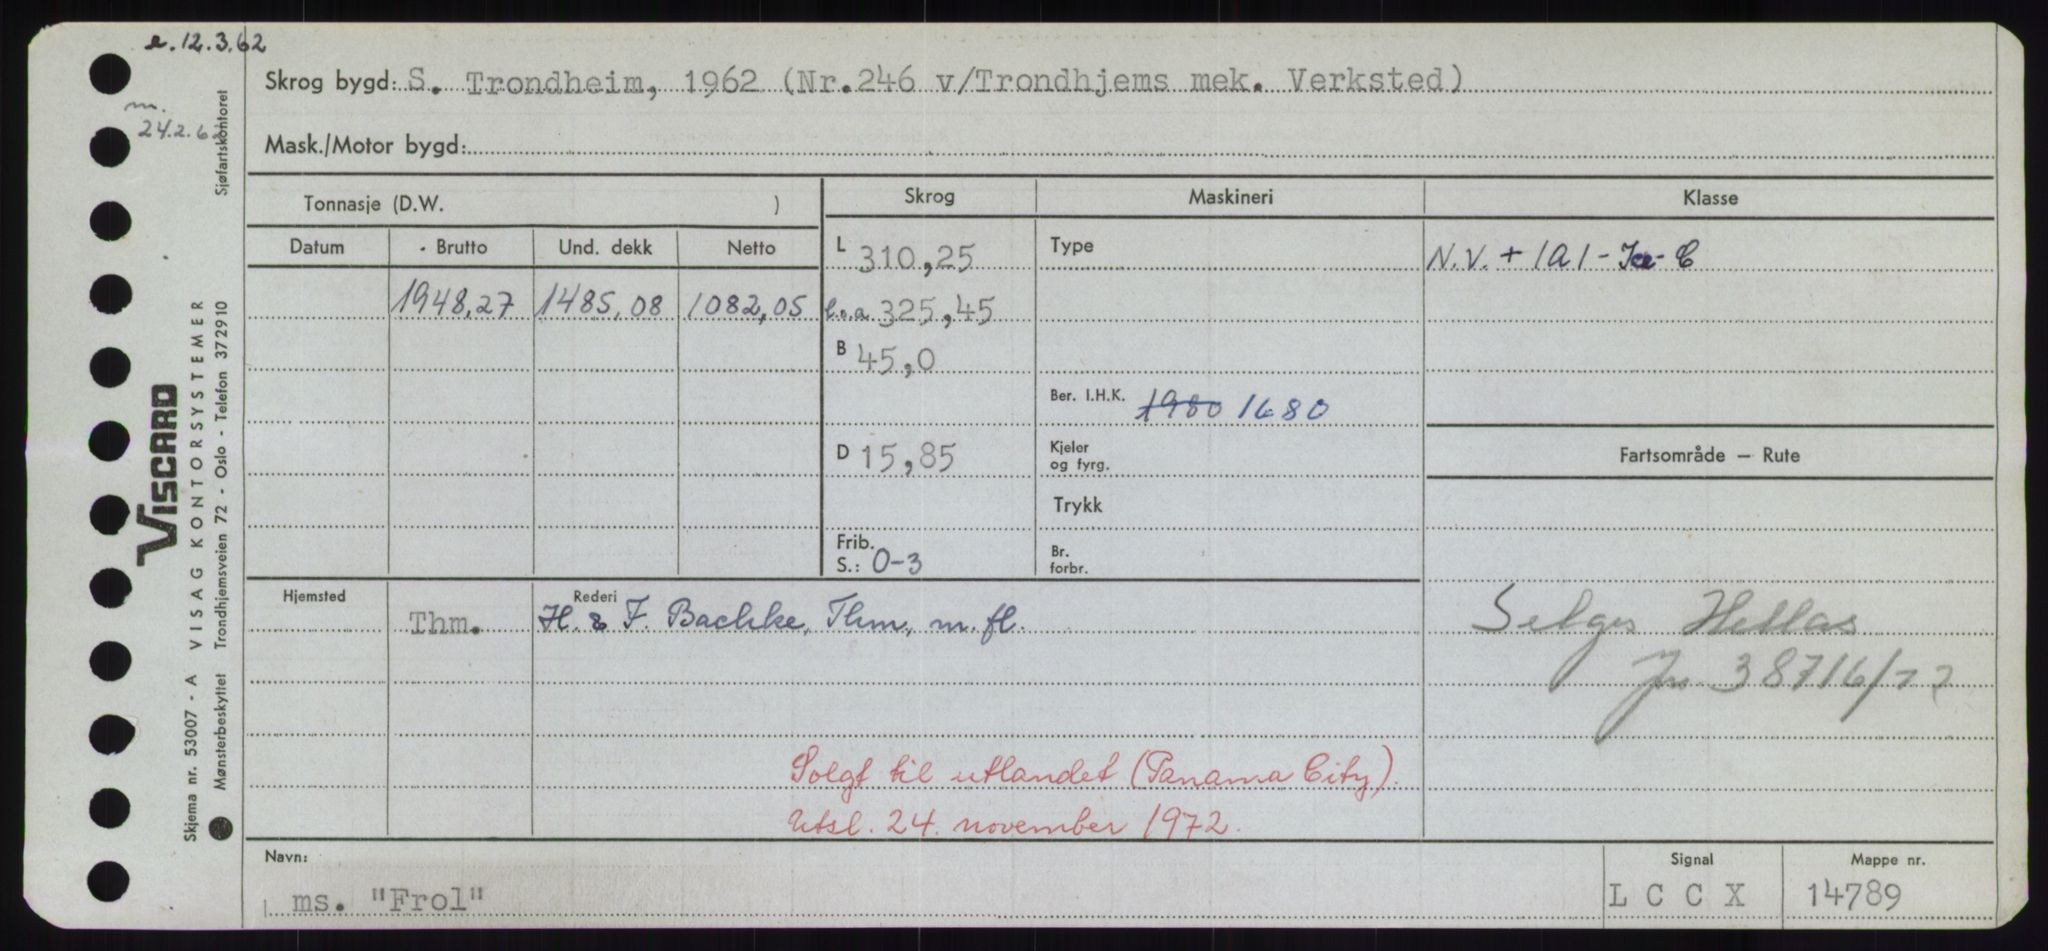 e. 12.3.62
m.
24.2.62
Skrog bygd: S. Trondheim, 1962 (Nr.246 v/Trondhjems mek. Verksted)
Mask./Motor bygd:
Tonnasje (D.W. )
Skrog Maskineri Klasse
Datum Brutto Und. dekk Netto
L 310,25 Type N.V. + 1A1 - Ice - C
1948,27 1485,08 1082,05 l.o.a 325,45
B 45,0
Ber. I.H.K. 1980 1680
D 15,85 Kjeler
og fyrg.
Fartsområde — Rute
Trykk
Frib.
S.: 0-3
Br.
forbr.
Hjemsted Rederi
Thm. H. & F. Bachke, Thm, m. fl.
Selges Hellas
Jnr 38716/72
Solgt til utlandet (Panama City).
Utsl. 24. november 1972.
Navn: Signal Mappe nr.
ms. "Frol" L C C X 14789
VISCARD
Skjema nr. 53007 - A VISAG KONTORSYSTEMER
Mønsterbeskyttet Trondhjemsveien 72 - Oslo - Telefon 372910 Sjøfartskontoret